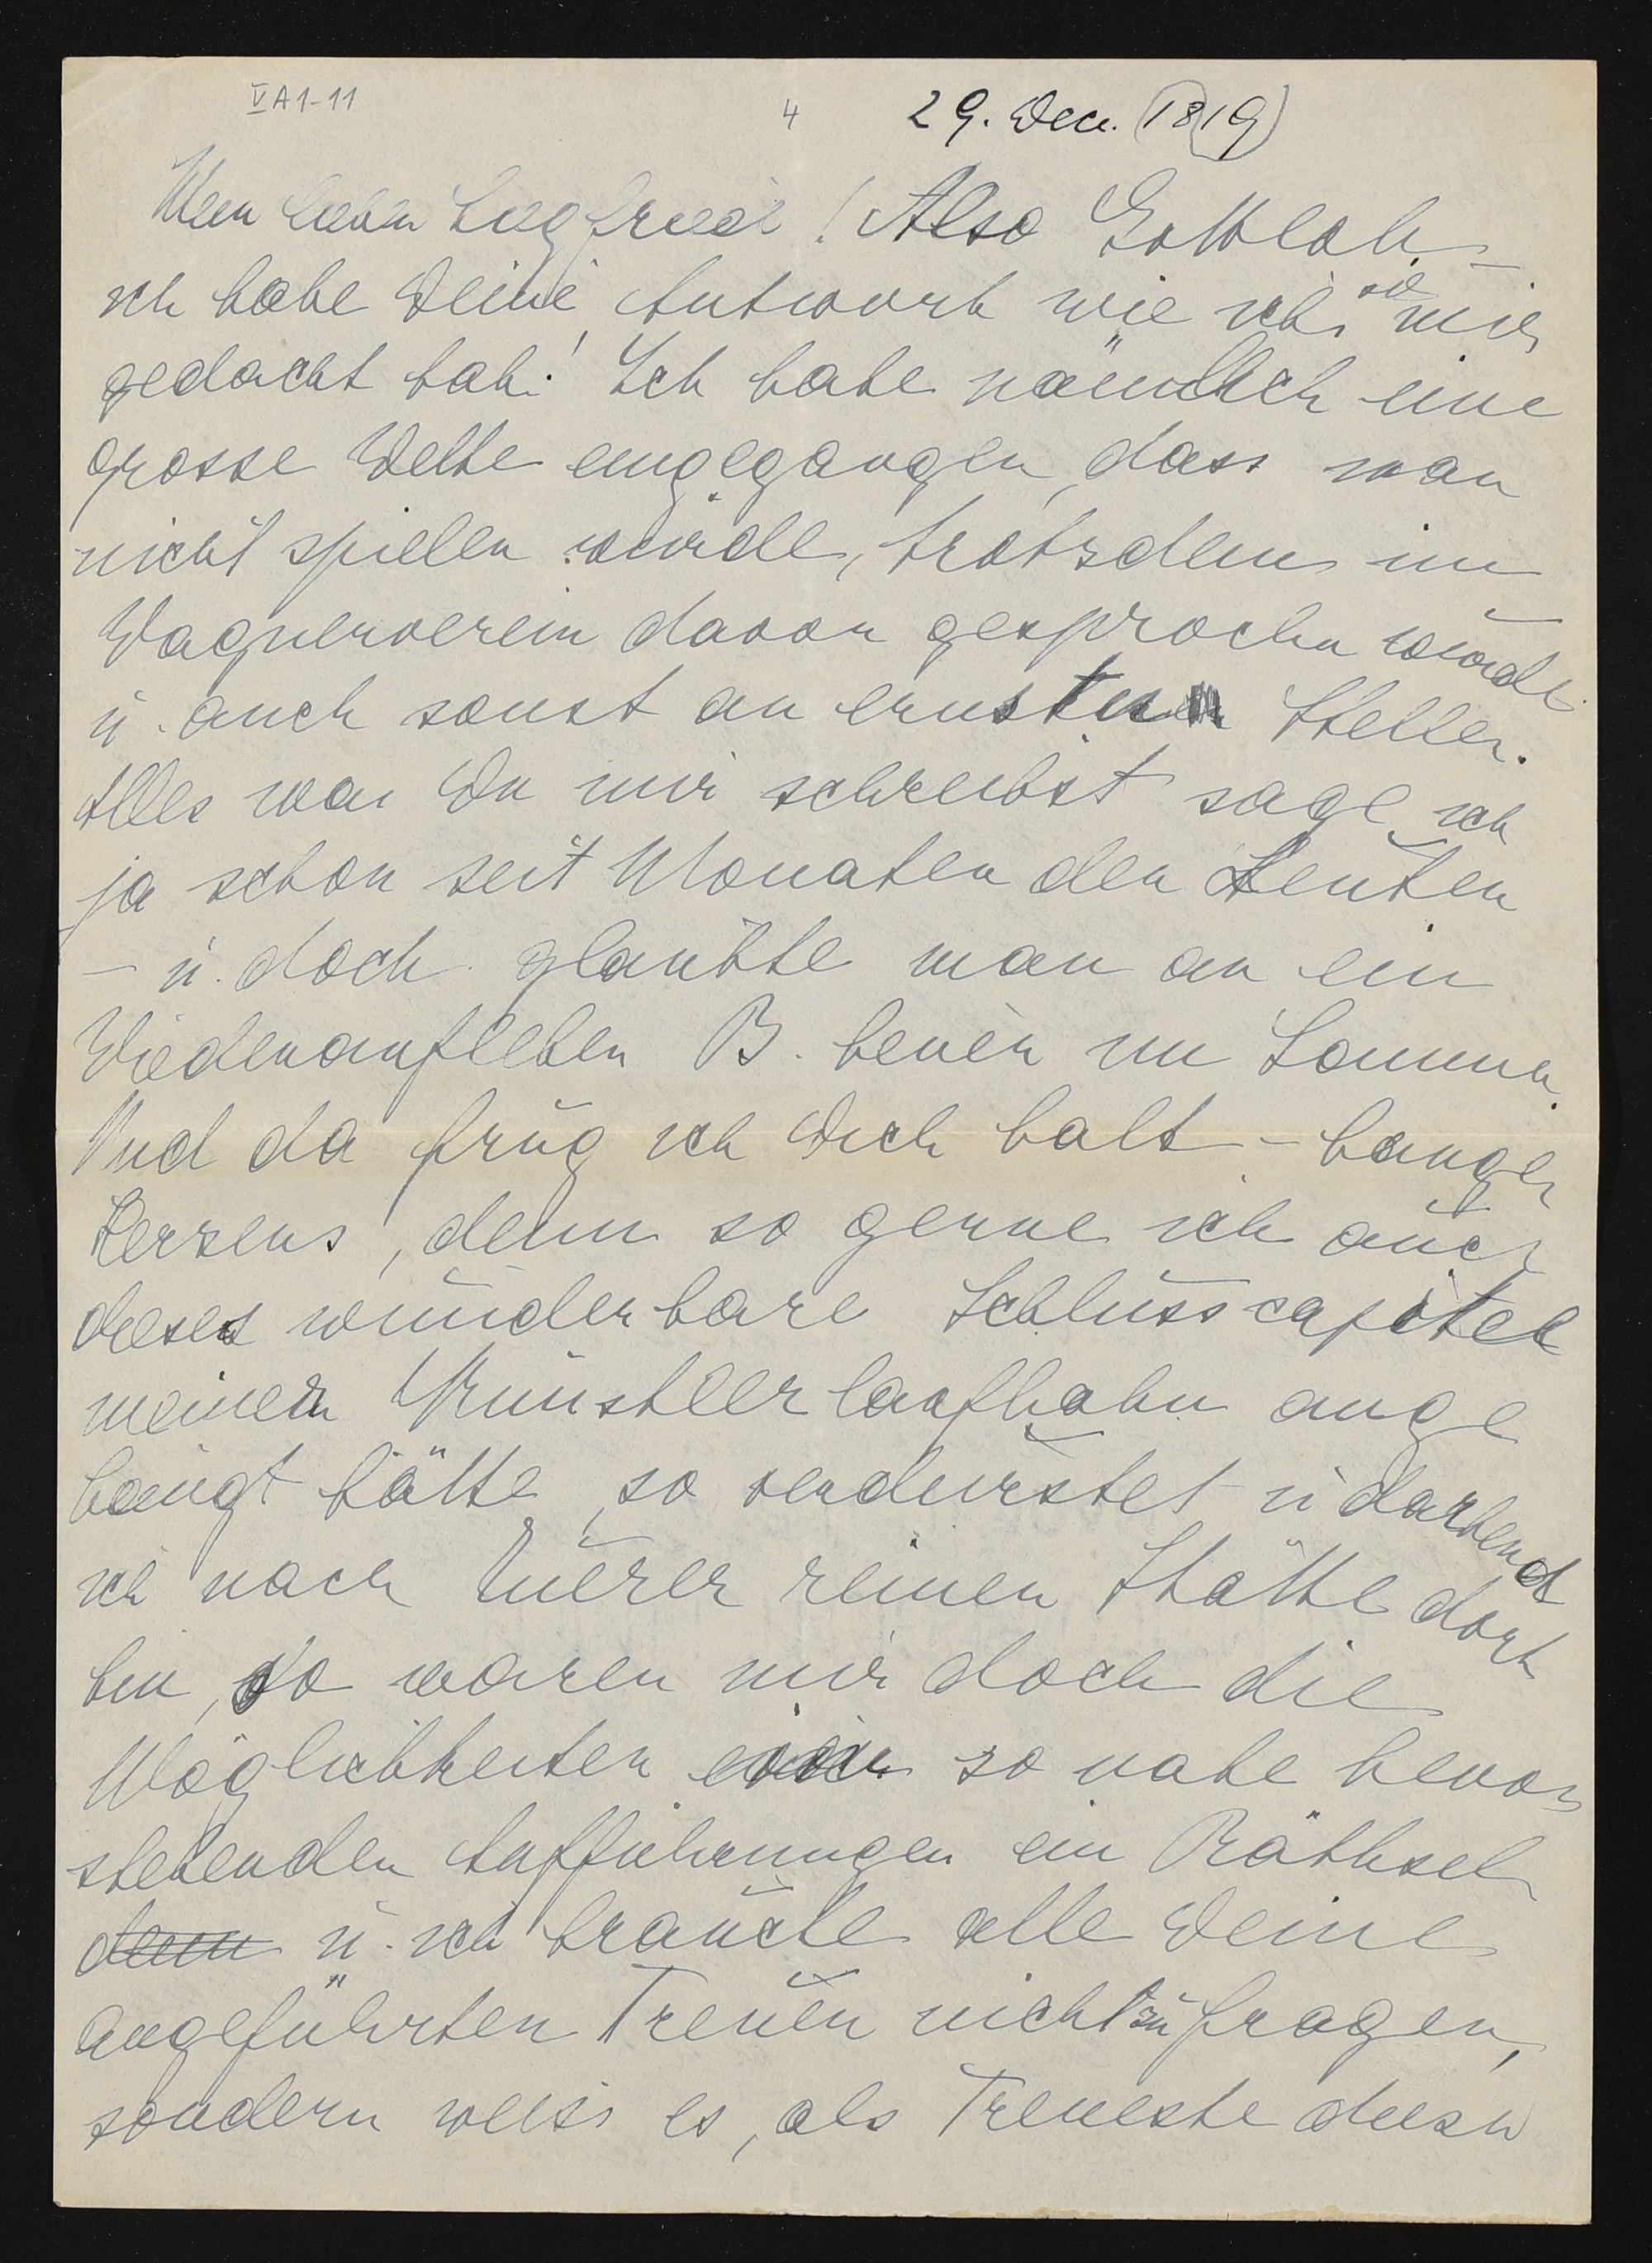 VA1-11
4
29. Dec. (1819)
Mein lieber Siegfried! Also Gottlob –
ich habe Deine Antwort wie ich sie mir
gedacht hab! Ich habe nämlich eine
grosse Wette eingegangen, dass man
nicht spielen würde, trotzdem im
Wagnerverein davon gesprochen wurde
u. auch sonst an ernsten Stellen.
Alles was Du mir schreibst sage ich
ja schon seit Monaten den Leuten
– u. doch glaubte man an ein
Wiederaufleben B. heuer im Sommer.
Und da frug ich Dich halt – bangen
Herzens, denn so gerne ich auch
dieses wunderbare Schlusscapitel
meiner Künstlerlaufbahn ange
hängt hätte, so verdurstet u darbend
ich nach Eurer reinen Stätte dort
bin, so waren mir doch die
Möglichkeiten so nahe bevor
stehenden Aufführungen ein Räthsel
denn u. ich brauchte alle Deine
angeführten Treuen nicht zu fragen,
sondern weiss es, als Treueste dieser